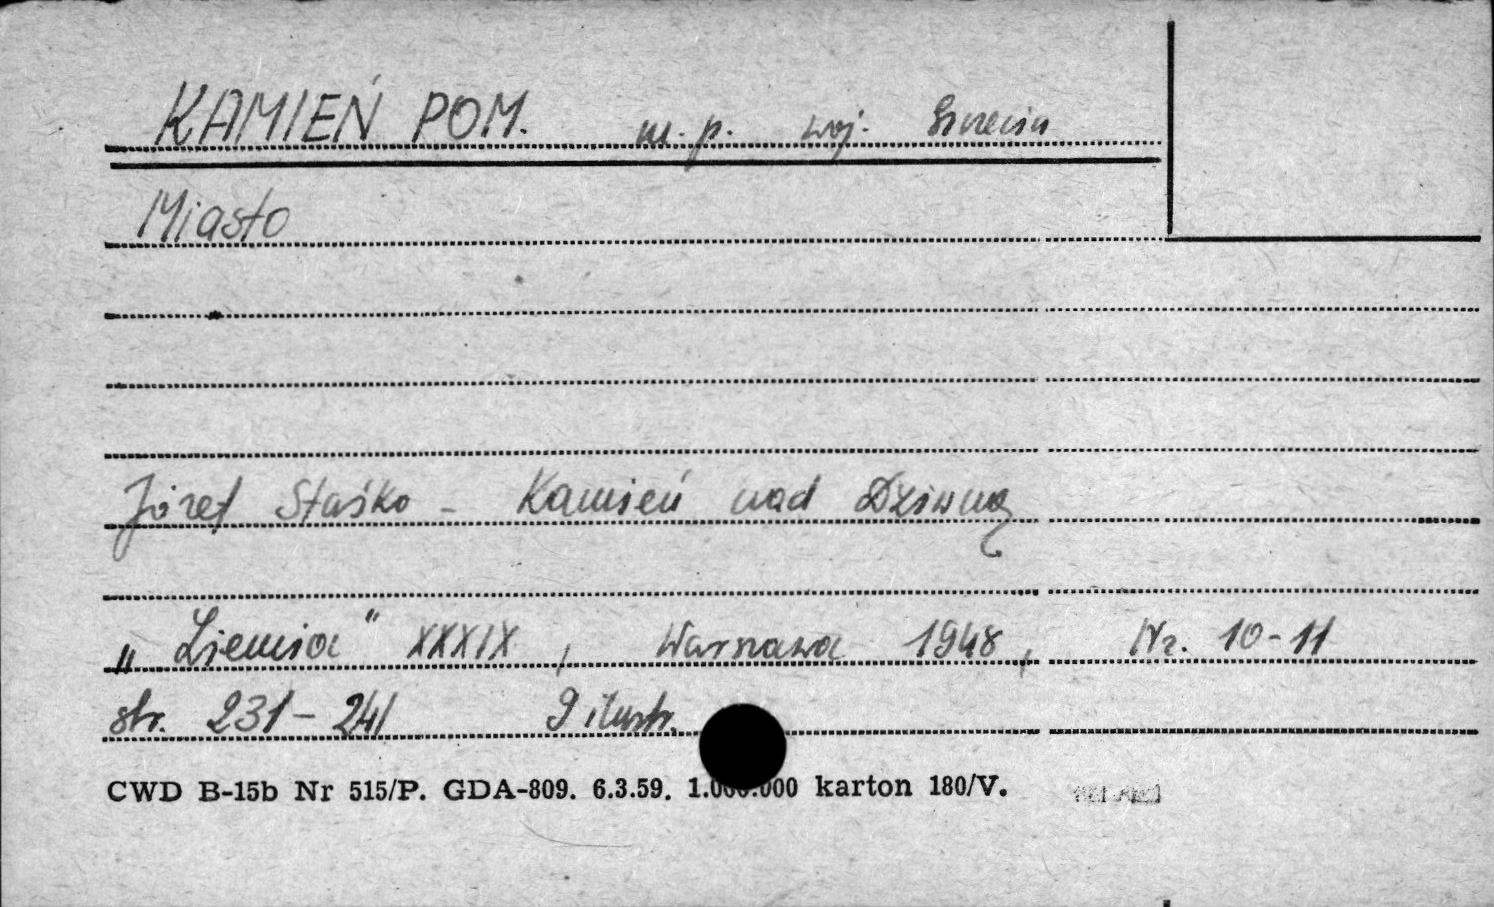 KAMIEŃ POM. m. p. woj. Szczecin
Miasto
Józef Staśko - Kamień nad Dziwną
„Ziemia" XXXIX, Warszawa 1948, Nr. 10-11
str. 231-241 9 ilustr.
CWD B-15b Nr 515/P. GDA-809. 6.3.59. 1.000.000 karton 180/V.